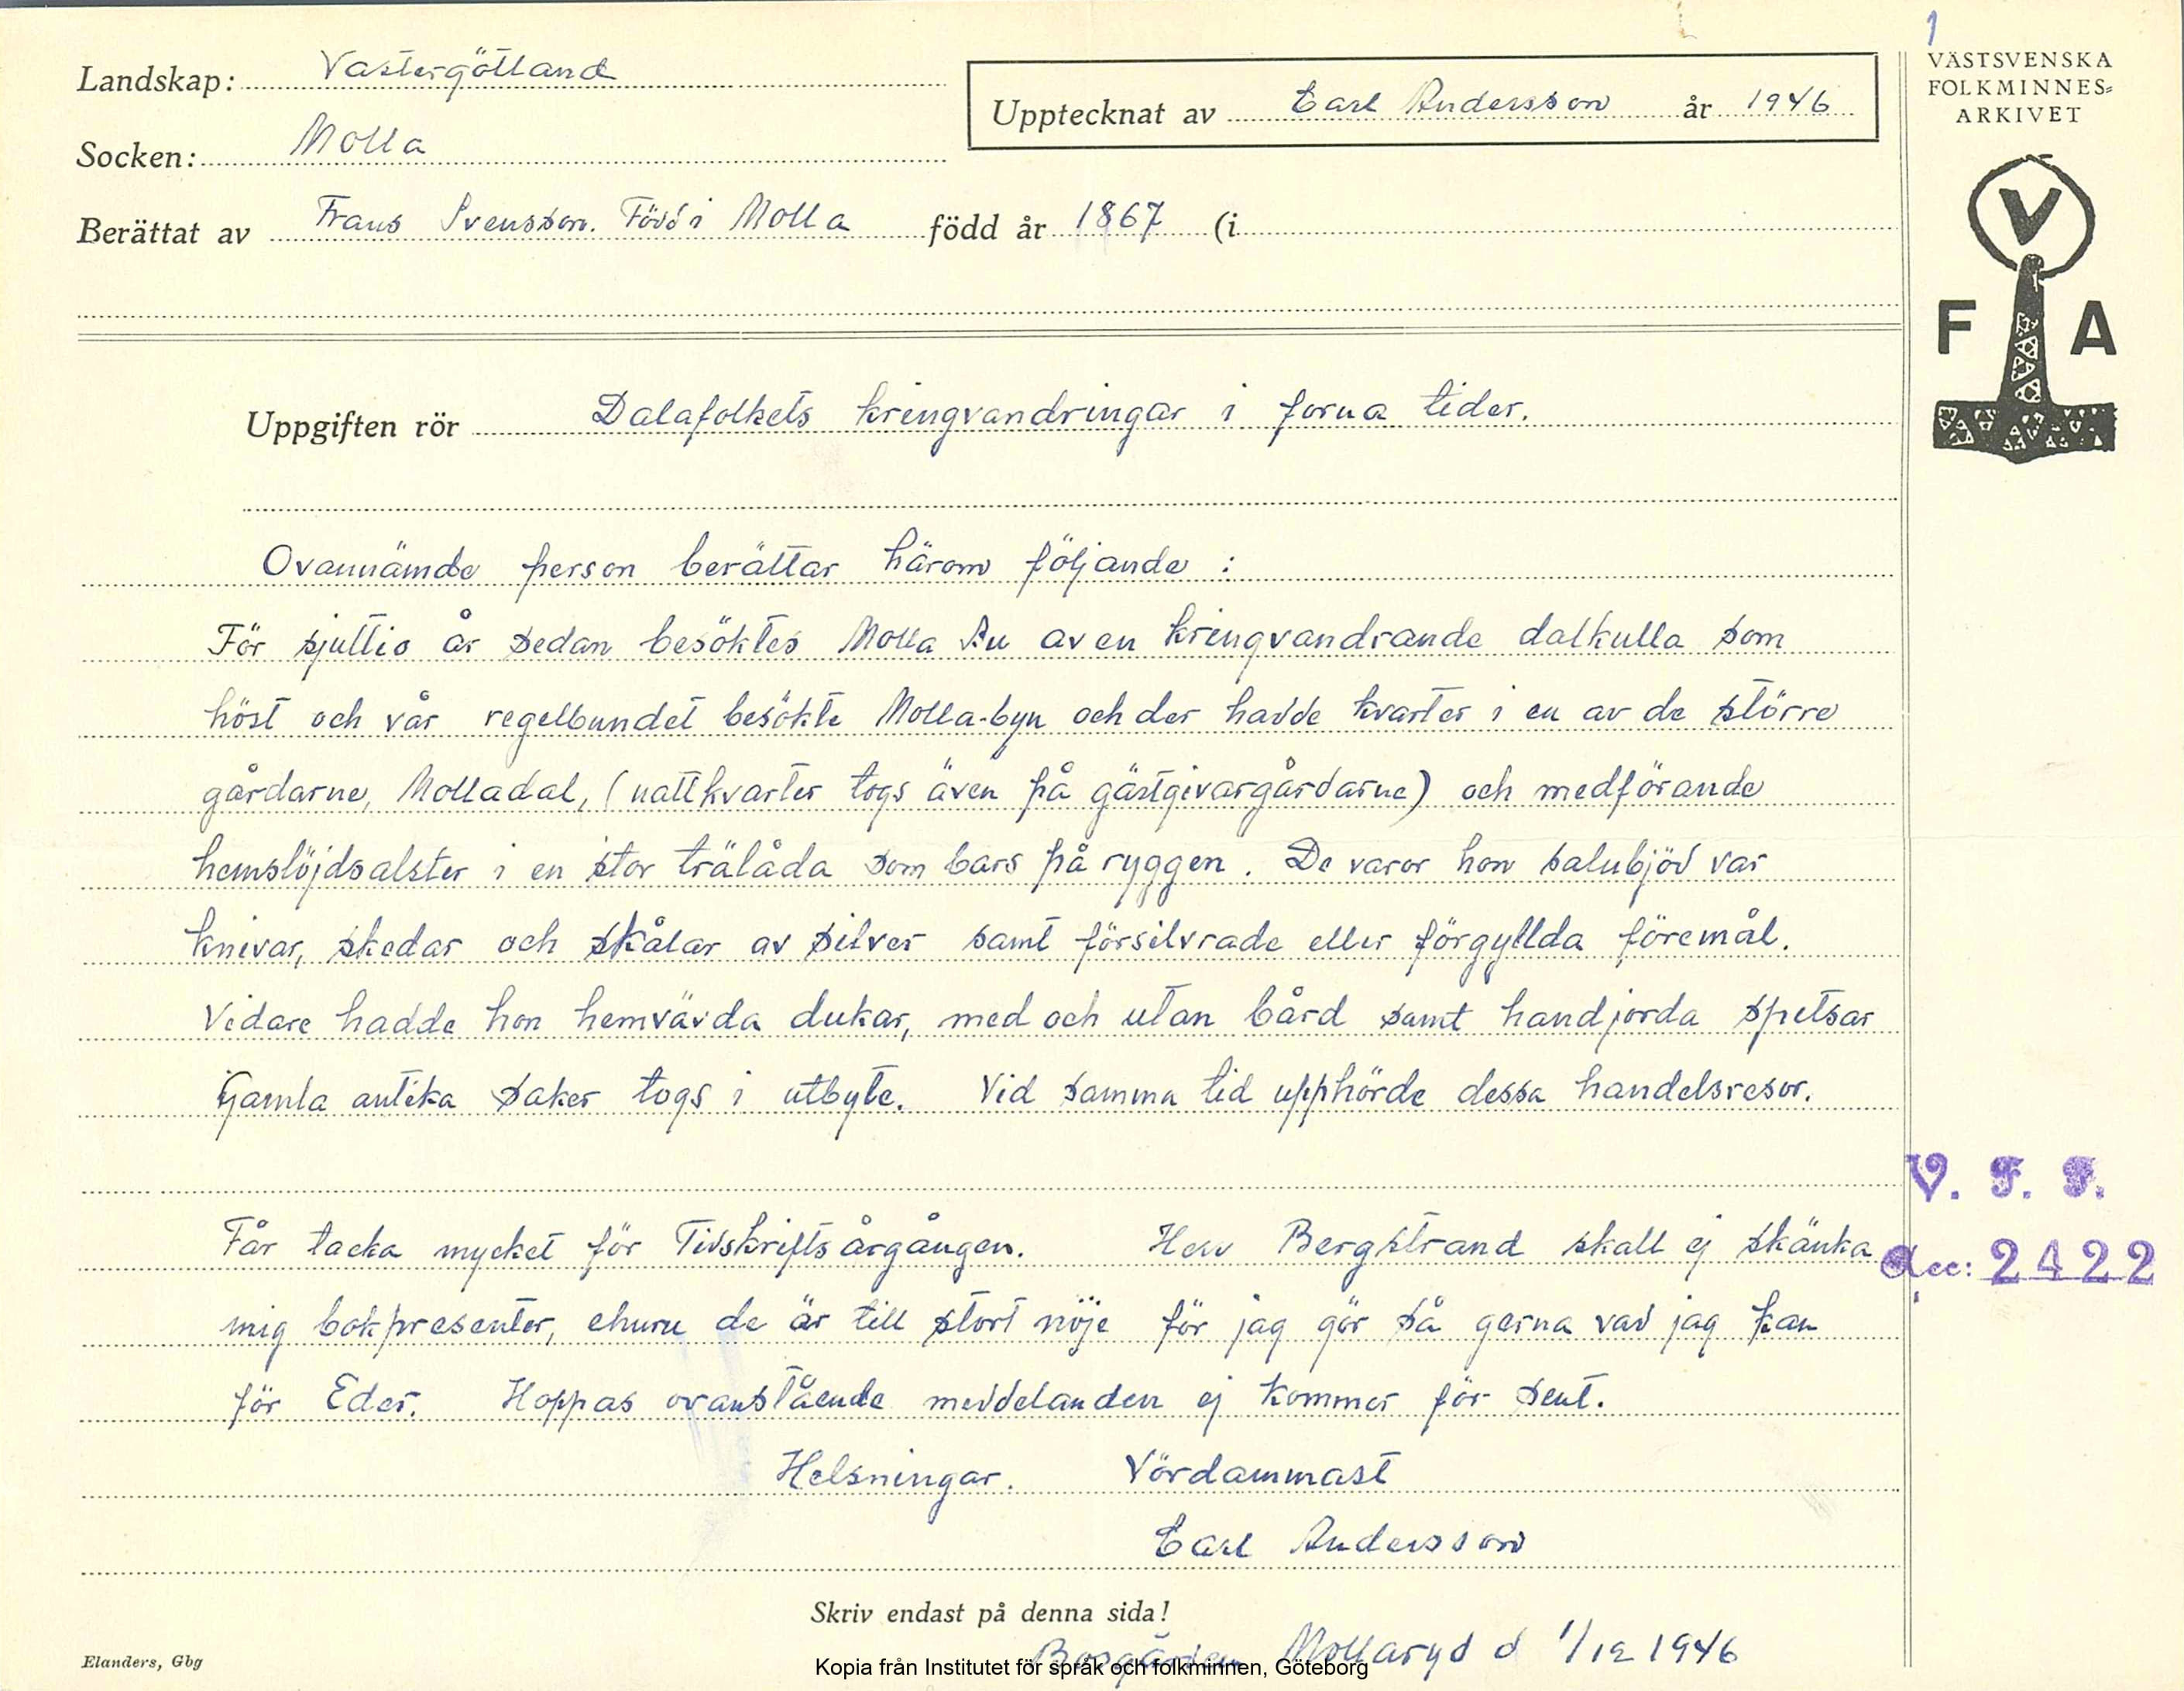 1
VÄSTSVENSKA
FOLKMINNES=
ARKIVET
V
F A
Landskap: Västergötland
Upptecknat av Carl Andersson år 1946
Socken: Molla
Berättat av Frans Svensson. Född i Molla född år 1867 (i
Uppgiften rör Dalafolkets kringvandringar i forna tider.
Ovannämde person berättar härom följande :
För sjuttio år sedan besöktes Molla av en kringvandrande dalkulla som
höst och vår regelbundet besökte Molla-byn och der hadde kvarter i en av de större
gårdarne, Molladal, (nattkvarter togs även på gästgivargårdarne) och medförande
hemslöjdsalster i en stor trälåda som bars på ryggen. De varor hon salubjöd var
knivar, skedar och skålar av silver samt försilvrade eller förgyllda föremål.
Vidare hadde hon hemvävda dukar, med och utan bård samt handjorda spetsar
Gamla antika saker togs i utbyte. Vid samma tid upphörde dessa handelsresor.
V. F. F.
Får tacka mycket för Tidskriftsårgången. Herr Bergstrand skall ej skänka
Acc: 2422
mig bokpresenter, ehuru de är till stort nöje för jag gör så gerna vad jag kan
för Eder. Hoppas ovanstående meddelanden ej kommer för sent.
Helsningar. Vördammast
Carl Andersson
Skriv endast på denna sida!
Bosgården Mollaryd d 1/12 1946
Elanders, Gbg
Kopia från Institutet för språk och folkminnen, Göteborg